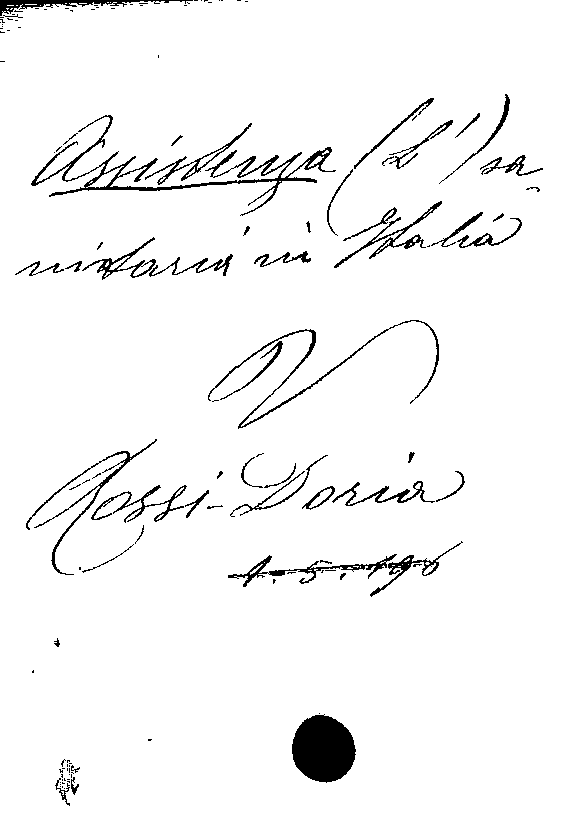 Assistenza (L') sa-
nitaria in Italia
V
Rossi-Doria
1.5.196